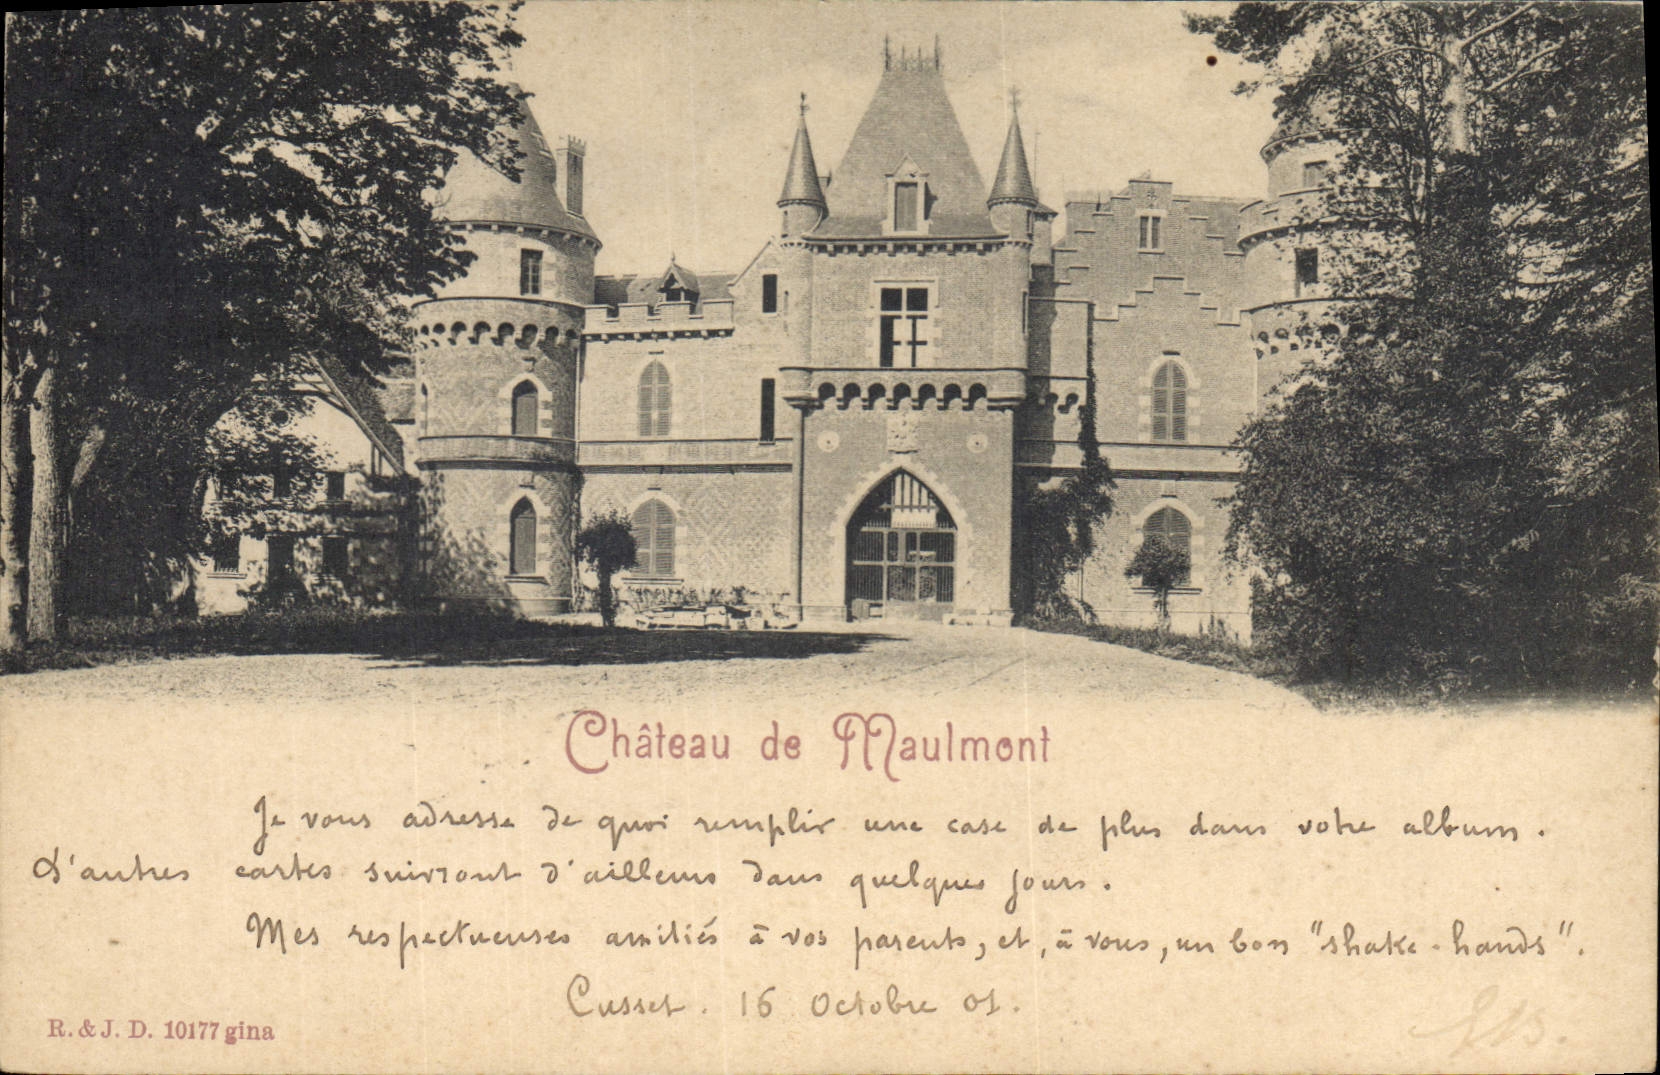 Château de Maulmont
Je vous adresse de quoi remplir une case de plus dans votre album.
D'autres cartes suivront d'ailleurs dans quelques jours.
Mes respectueuses amitiés à vos parents, et, à vous, un bon "shake-hands".
Cusset. 16 Octobre 01.
R. & J. D. 10177 gina